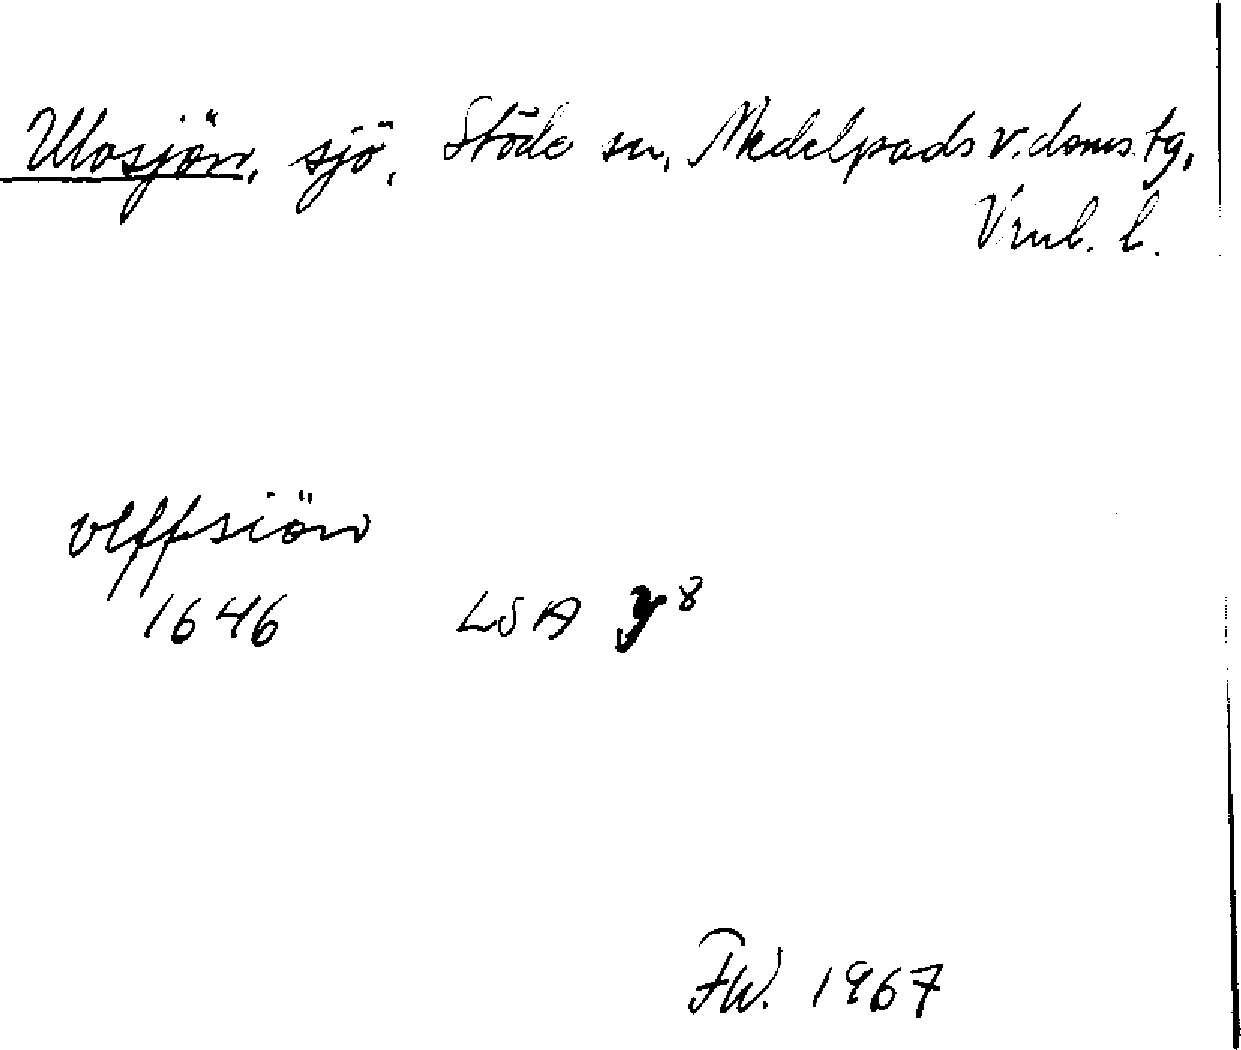 Ulvsjön, sjö, Stöde sn, Medelpads v. doms. tg,
Vnl. l.
vlffsiön
1646 LSA y 8
FW. 1967